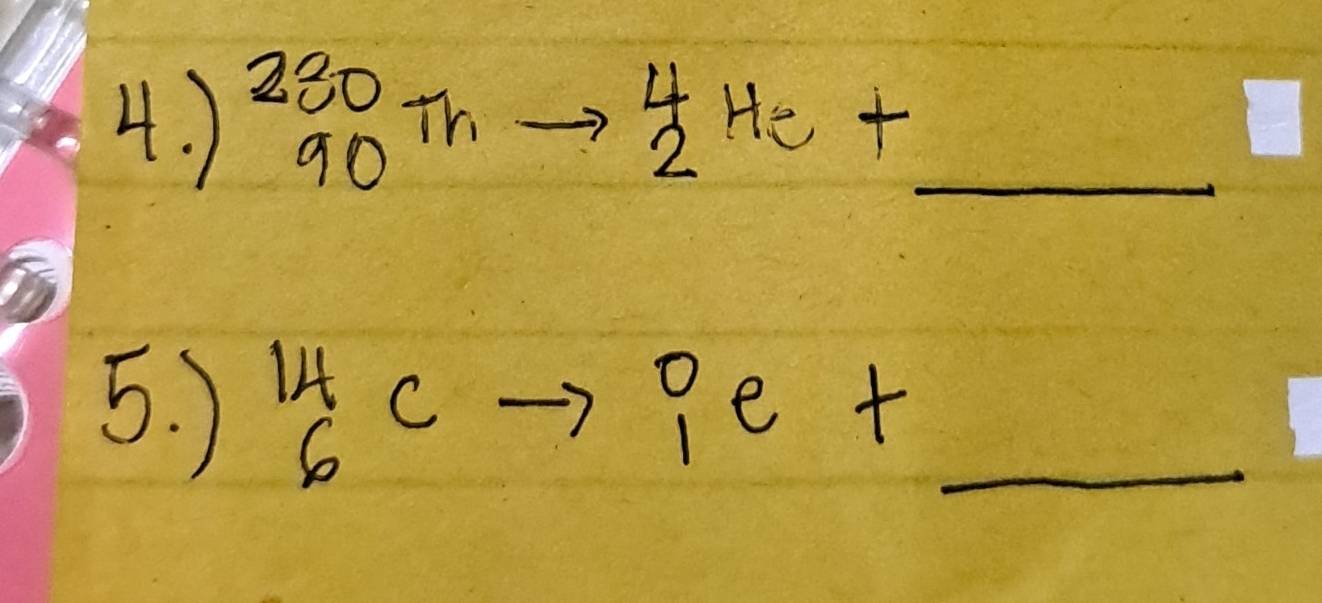 4.) ²³⁰₉₀Th → ⁴₂He + ______
5.) ¹⁴₆C → ⁰₁e + ______